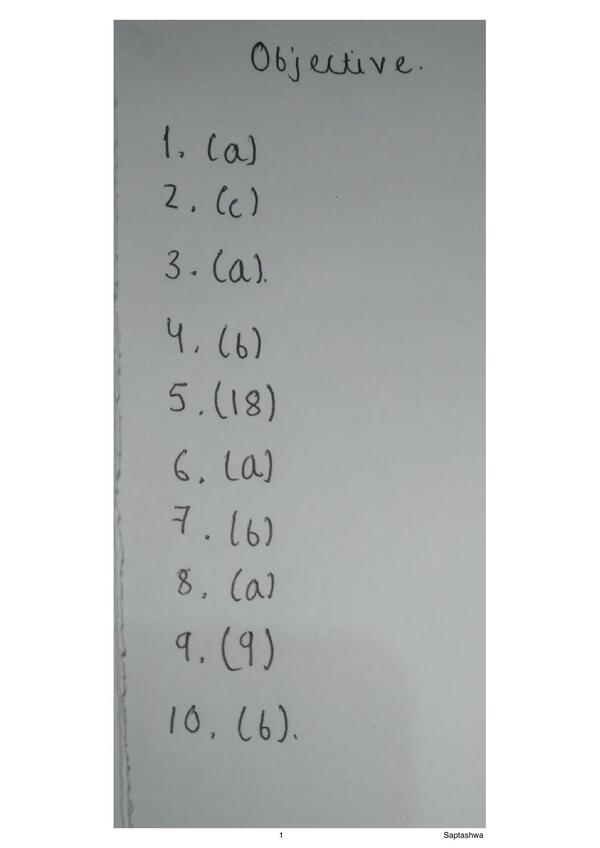 Objective.
1. (a)
2. (c)
3. (a).
4. (b)
5. (18)
6. (a)
7. (b)
8. (a)
9. (9)
10. (b).
1 Saptashwa